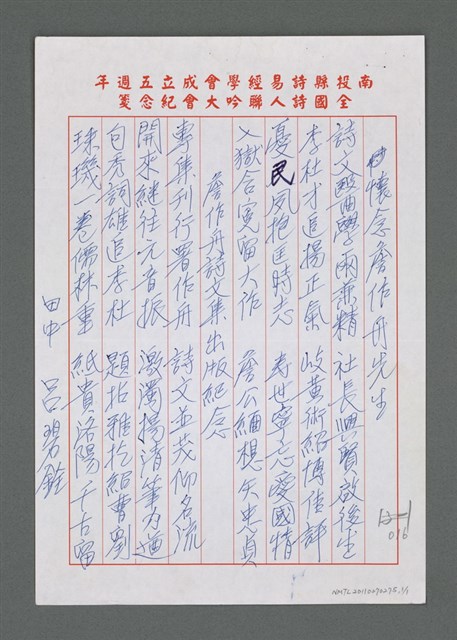 南投縣詩易經學會成立五週年
全國詩人聯吟大會紀念箋
懷念詹作舟先生
詩文醫學兩兼精 社長興賢啟後生
李杜才追揚正氣 岐黃術紹博佳評
憂民夙抱匡時志 壽世寧忘愛國情
入獄含冤留大作 詹公緬想矢忠貞
詹作舟詩文集出版紀念
專集刊行署作舟 詩文並茂仰名流
開來繼往元音振 激濁揚清筆力遒
句秀詞雄追李杜 題拈雅紹曹劉
珠璣一卷儒林重 紙貴洛陽千古留
田中 呂碧銓
016
NMTL20110270275.1/1